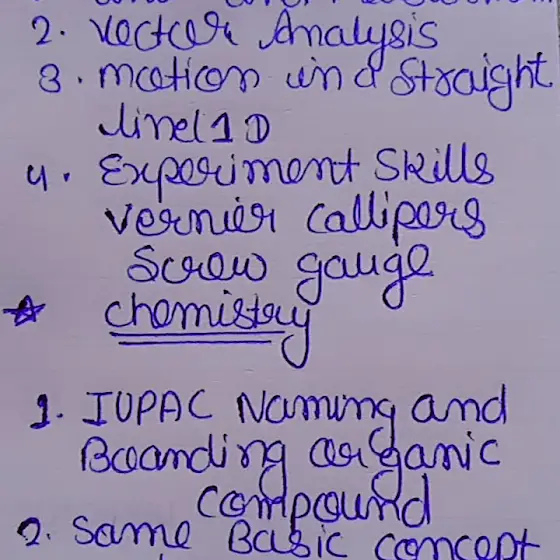 2. Vector Analysis
3. motion in a Straight
line(1D
4. Experiment Skills
Vernier Callipers
Screw gauge
☆ chemistry
1. IUPAC Naming and
Boanding organic
Compound
2. Some Basic concept